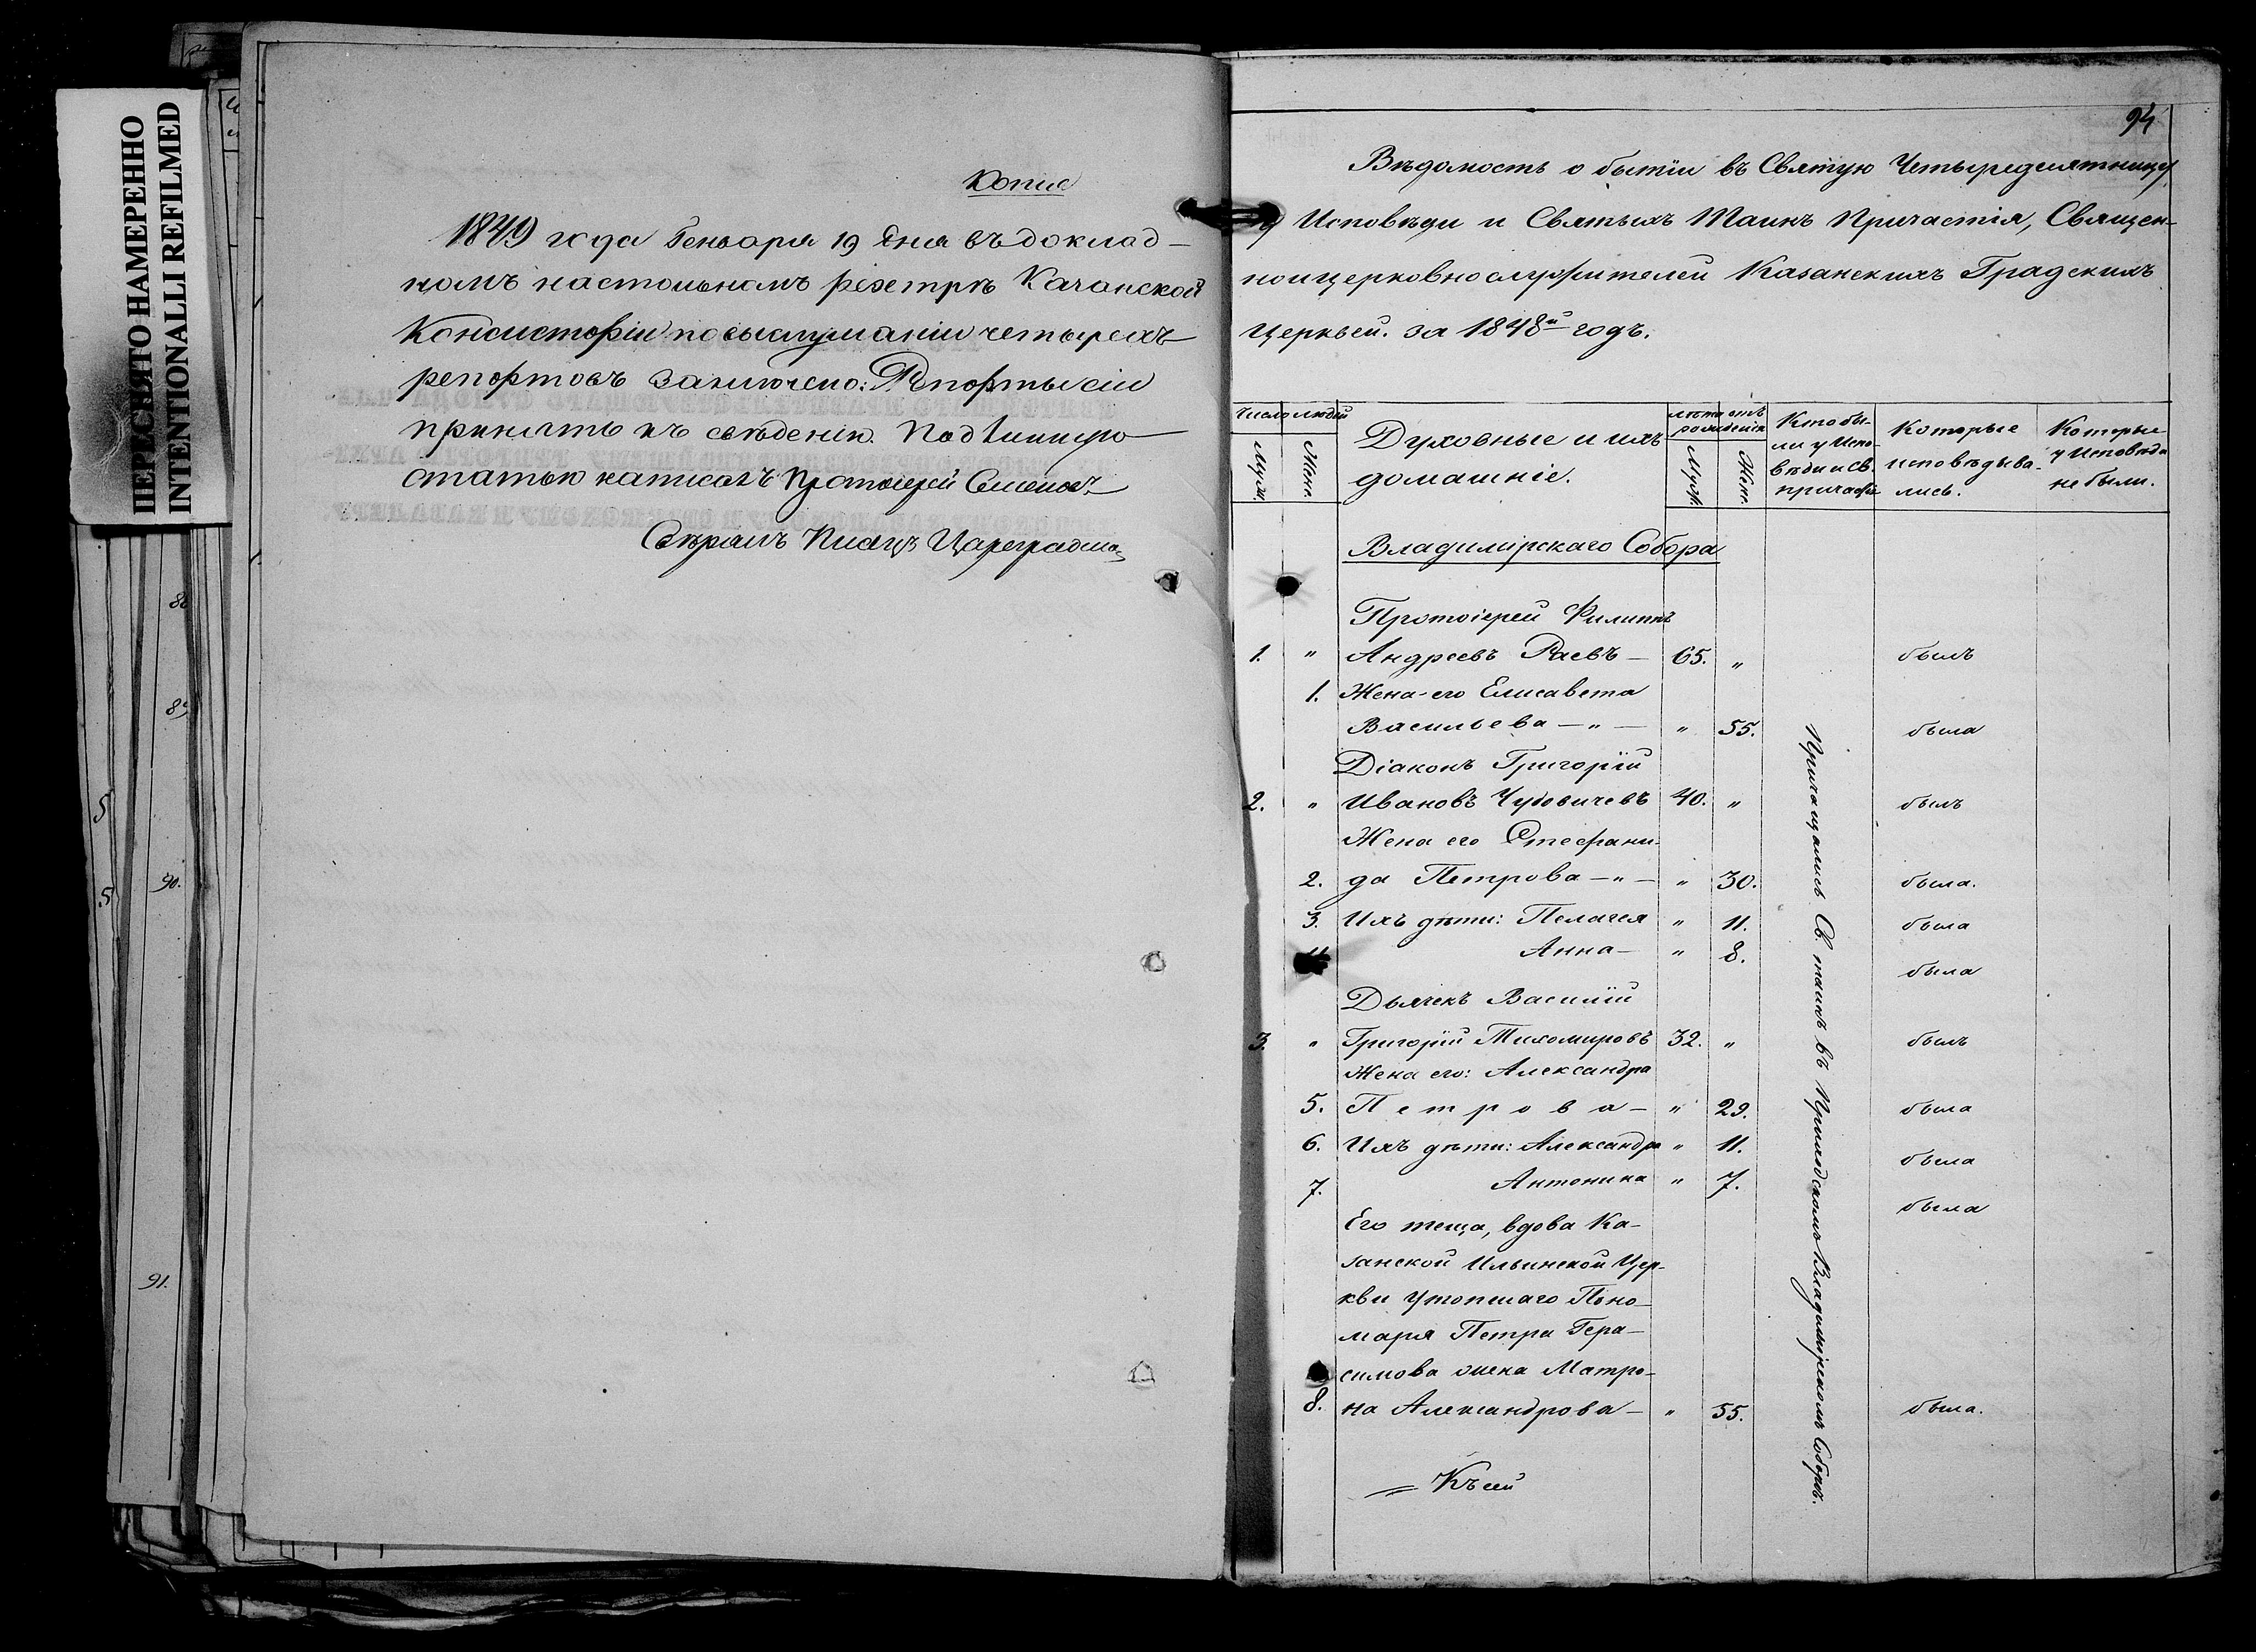 ПЕРЕСНЯТО НАМЕРЕННО
INTENTIONALLI REFILMED
86
89
5
90.
5
91.
Копия
1849 года Генваря 19 дня въ доклад-
номъ настольномъ реэстрѣ Казанской
Консисторіи по выслушаніи четырехъ
репортовъ заключено: Репорты сіи
принять къ свѣденію. Подлинную
статью написалъ Протоіерей
Вѣдомость о бытіи въ Святую Четыредесятницу
у Исповѣди и Святыхъ Таинъ Причастія, Священ-
ноицерковнослужителей Казанскихъ Градскихъ
Церквей. за 1848й годъ.
94
Число людей
Муж.
Женс.
Духовные и ихъ
домашніе.
лѣта отъ
рожденія
Муж.
Женс.
Кто бы-
ли у Испо-
вѣди и Св.
причастія
Которые
исповѣдыва-
лись.
Которые
у Исповѣди
не были.
Владимірскаго Собора
Протоіерей Филиппъ
1. " Андреевъ Раевъ — 65. " былъ
1. Жена его Елисавета
Васильева — " — " 55. была
Діаконъ Григорій
2. " Ивановъ 40. " былъ
Жена его Стефани-
2. да Петрова — " — " 30. была.
3. Ихъ дѣти: Пелагея " 11. была
4. Анна — " 8. была
Дьячекъ Василій
3. " Григорій Тихомировъ 32. " былъ
Жена его: Александра
5. Петрова — " 29. была
6. Ихъ дѣти: Александра " 11. была
7. Антонина " 7. была
Его теща, вдова Ка-
занской Ильинской Цер-
кви утопшаго Поно-
маря Петра Гера-
симова жена Матро-
8. на Александрова — " 55. была.
Причащались Св. таинъ въ Приходскомъ Владимірскомъ Соборѣ.
= Къ сей